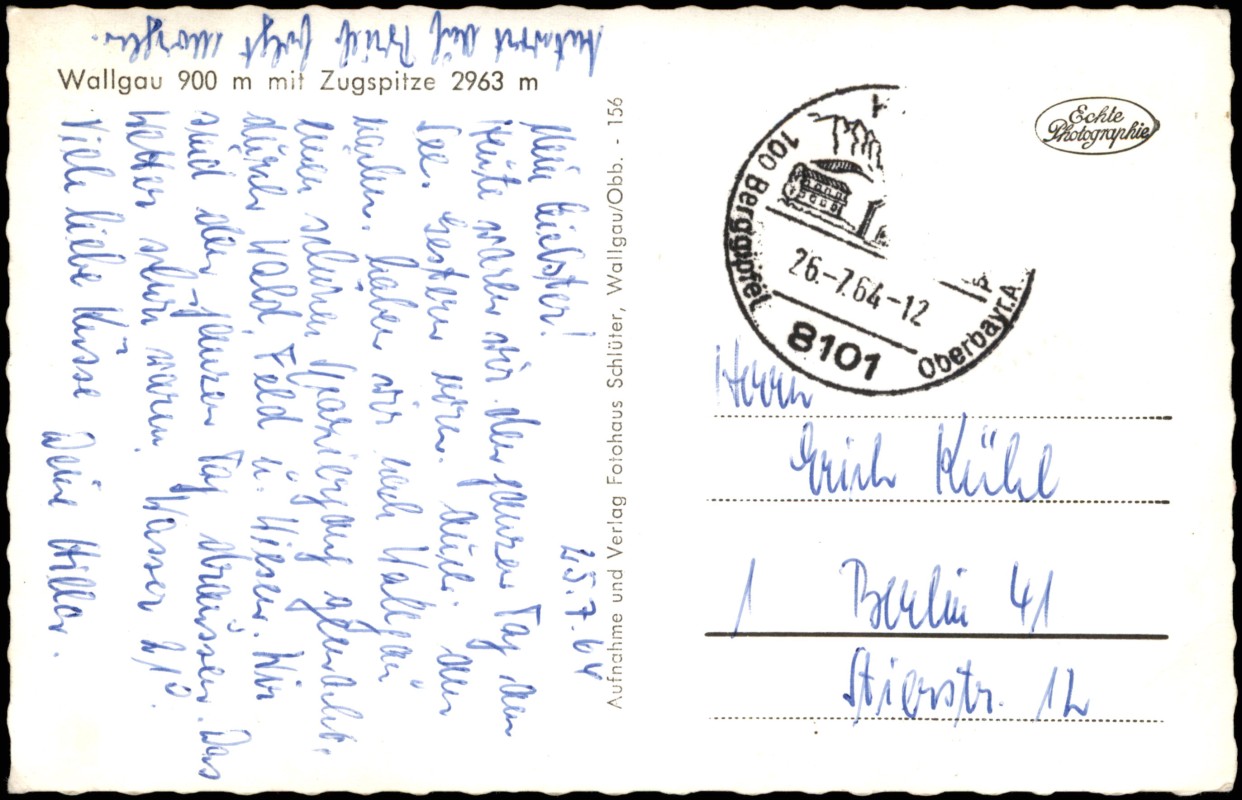 Wallgau 900 m mit Zugspitze 2963 m
25.7.64
Mein Liebster!
Heute waren wir den ganzen Tag am
See. Gestern vorm. auch. Am
haben wir nach Wallgau
einen schönen Spaziergang gemacht.
durch Wald Feld u. Wiesen. Wir
sind den ganzen Tag draussen. Das
Wetter schön warm. Wasser 21°.
Viele liebe Küsse Deine
Antwort auf Brief folgt morgen.
Aufnahme und Verlag Fotohaus Schlüter, Wallgau/Obb. - 156
Echte
Photographie
100 Berggipfel
26.-7.64-12
8101
Oberbayr. A.
Herrn
Erich Kühl
1 Berlin 41
Stierstr. 12